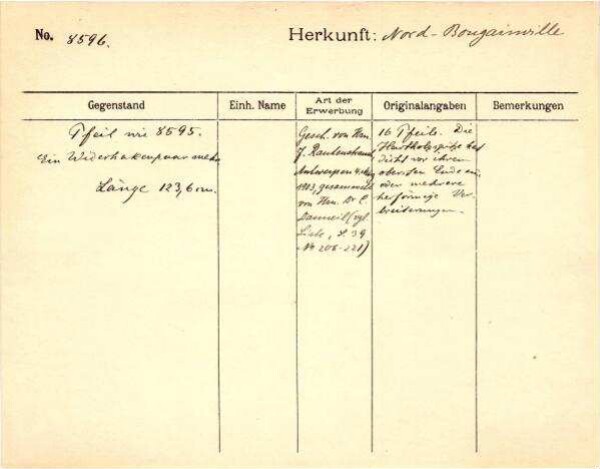 No. 8596.
Herkunft: Nord-Bougainville
Gegenstand
Einh. Name
Art der Erwerbung
Originalangaben
Bemerkungen
Pfeil wie 8595.
Ein Widerhakenpaar mehr
Länge 123,6 cm.
Gesch. von Hrn.
J. Rautenstrauch,
Antwerpen
gesammelt
von Hrn. Dr. C.
Danneil (vgl.
Liste, S. 39
No 208-221)
16 Pfeile. Die
Hartholzspitze hat
dicht vor ihrem
obersten Ende ein
oder mehrere
Ver-
breiterungen.